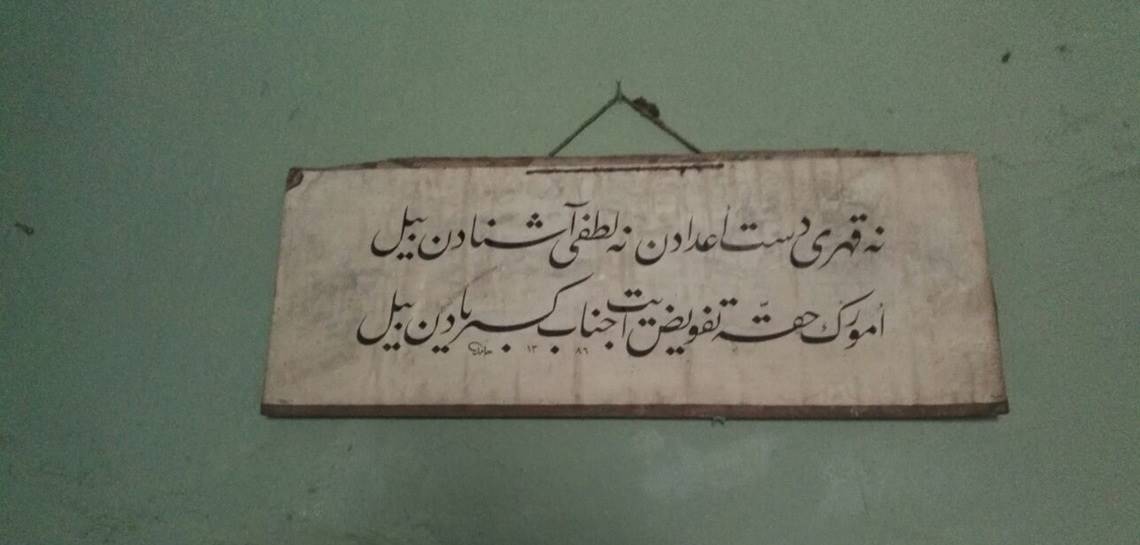 نه قهری دست أعدادن نه لطفی آشنادن بیل
أمورك حقّه تفویض ایت جناب کبریادن بیل
حامد ١٣٨٦